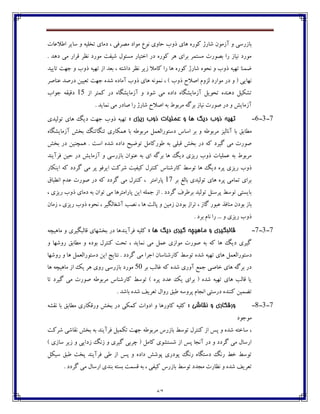 بازرسی و آزمون شارژ کوره های ذوب حاوی نوع مواد مصرفی ، دمای تخلیه و سایر اطلاعات
مورد نیاز را بصورت مستمر برای هر کوره در اختیار مسئول شیفت مورد نظر قرار می دهد .
ضمنا تهیه ذوب و نحوه شارژ کوره ها را کاملا زیر نظر داشته ، بعد از تهیه ذوب و جهت تایید
نهایی ( و در موارد لزوم اصلاح ذوب ) ، نمونه های ذوب آماده شده جهت تعیین درصد عناصر
تشکیل دهنده تحویل آزمایشگاه داده می شود و آزمایشگاه در کمتر از 15 دقیقه جواب
آزمایش و در صورت نیاز برگه مربوط به اصلاح شارژ را صادر می نماید .
7-3-6- تهیه ذوب دیگ ها و عملیات ذوب ریزی : تهیه ذوب جهت دیگ های تولیدی
مطابق با آنالیز مربوطه و بر اساس دستورالعمل مربوطه با همکاری تنگاتنگ بخش آزمایشگاه
صورت می گیرد که در بخش قبلی به طورکامل توضیح داده شده است . همچنین در بخش
مربوط به عملیات ذوب ریزی دیگ ها برگه ای به عنوان بازرسی و آزمایش در حین فرآیند
ذوب ریزی پره دیگ ها توسط کارشناس کنترل کیفیت شرکت ایرفو پر می گردد که اینکار
برای تمامی پره های تولیدی بالغ بر 17 پارامتر ، کنترل می گردد که در صورت عدم انطباق
بایستی توسط پرسنل تولید برطرف گردد . از جمله این پارامترها می توان به دمای ذوب ریزی ،
باز بودن منافذ عبور گاز ، تراز بودن زمین و پالت ها ، نصب آشغالگیر ، نحوه ذوب ریزی ، زمان
ذوب ریزی و ... را نام برد .
7-3-7- قالبگیری و ماهیچه گیری دیگ ها : کلیه فرآیندها در بخشهای قالبگیری و ماهیچه
گیری دیگ ها که به صورت موازی عمل می نماید ، تحت کنترل بوده و مطابق روشها و
دستورالعمل های تهیه شده توسط کارشناسان اجرا می گردد . نتایج این دستورالعمل ها و روشها
در برگه های خاصی جمع آوری شده که غالب بر 50 مورد بازرسی روی هر یک از ماهیچه ها
یا قالب های تهیه شده ( برای یک عدد پره ) توسط کارشناس مربوطه صورت می گیرد تا
تضمین کننده درستی انجام پروسه طبق روال تعریف شده باشد .
7-3-8- ورقکاری و نقاشی : کلیه کاورها و ادوات کمکی در بخش ورقکاری مطابق با نقشه موجود
، ساخته شده و پس از کنترل توسط بازرس مربوطه جهت تکمیل فرآیند به بخش نقاشی شرکت
ارسال می گردد و در آنجا پس از شستشوی کامل ( چربی گیری و زنگ زدایی و زیر سازی )
توسط خط رنگ دستگاه رنگ پودری پوشش داده و پس از طی فرآیند پخت طبق سیکل
تعریف شده و نظارت مجدد توسط بازرس کیفی ، به قسمت بسته بندی ارسال می گردد .